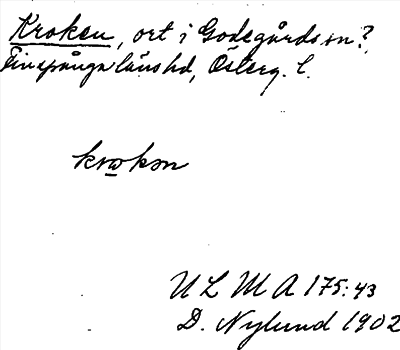 Kroken, ort i Godegårds sn?,
Finspånga läns hd, Österg. l.
krɷkən
ULMA 175:43
D. Nylund 1902